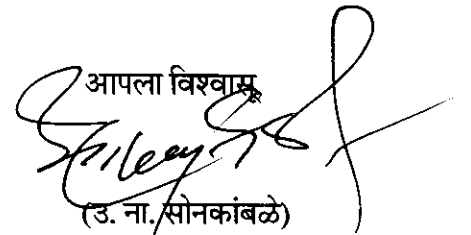 आपला विश्वासू
(उ. ना. सोनकांबळे)